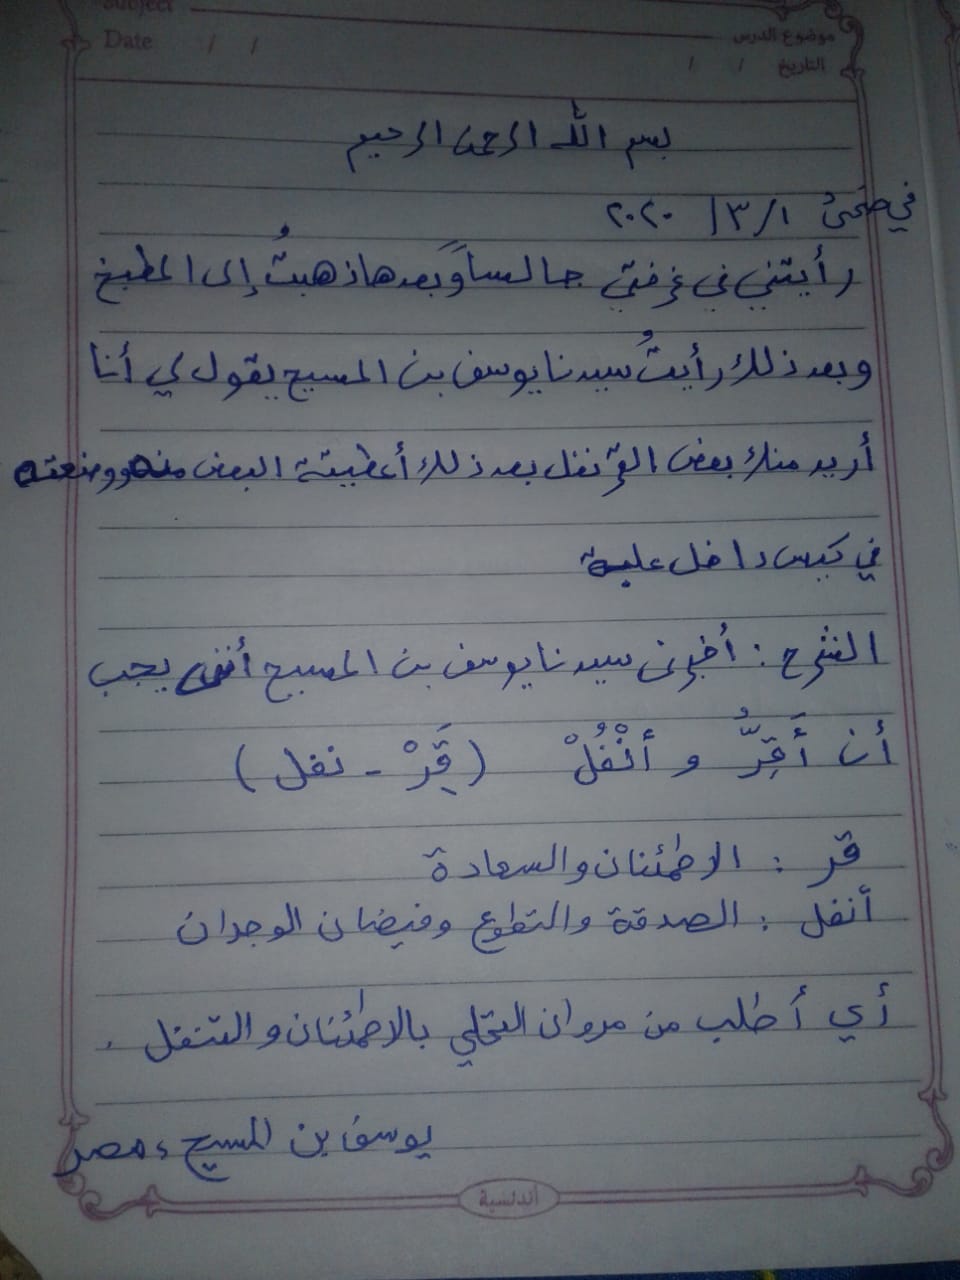 Subject
Date / /
موضوع الدرس
التاريخ / /
بسم الله الرحمن الرحيم
في ضحى ١/ ٣/ ٢٠٢٠
رأيتني في غرفتي جالساً وبعدها ذهبتُ إلى المطبخ
وبعد ذلك رأيتُ سيدنا يوسف بن المسيح يقول لي أنا
أريد منك بعض القرنفل بعد ذلك أعطيته البعض منه ووضعته
في كيس داخل علبة
الشرح : أخبرني سيدنا يوسف بن المسيح أنني يجب
أن أَقِرُّ و أَنْفُلْ ( قَِرْ - نفل )
قر : الاطمئنان والسعادة
أنفل : الصدقة والتطوع وفيضان الوجدان
أي أطلب من مروان التحلي بالاطمئنان والتنفل .
يوسف بن المسيح ، مصر
أندلسية